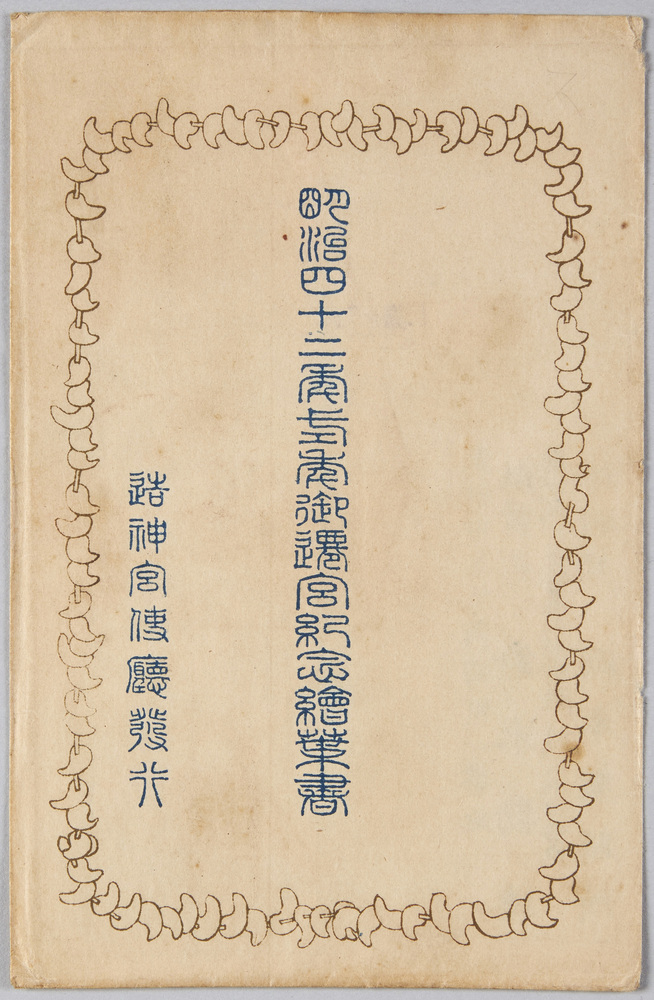 明治四十二年式年御遷宮紀念繪葉書
造神宮使廳發行